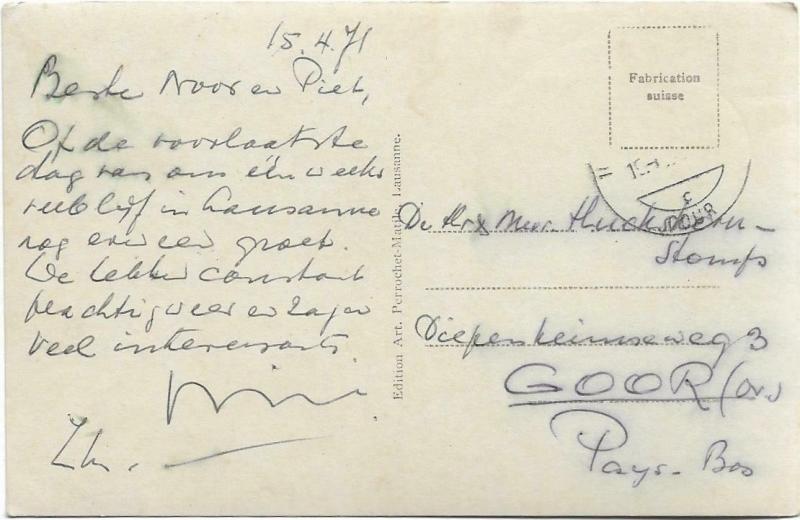 15.4.71
Beste Noor en Piet,
Op de voorlaatste
dag van ons één weeks
verblijf in Lausanne
nog even een groet.
We hebben constant
prachtig weer en zagen
veel interessants.
Edition Art. Perrochet-Matile, Lausanne.
Fabrication
suisse
15
De Hr & Mevr.
Stomps
Diepenheimseweg 3
GOOR (Ov.)
Pays-Bas